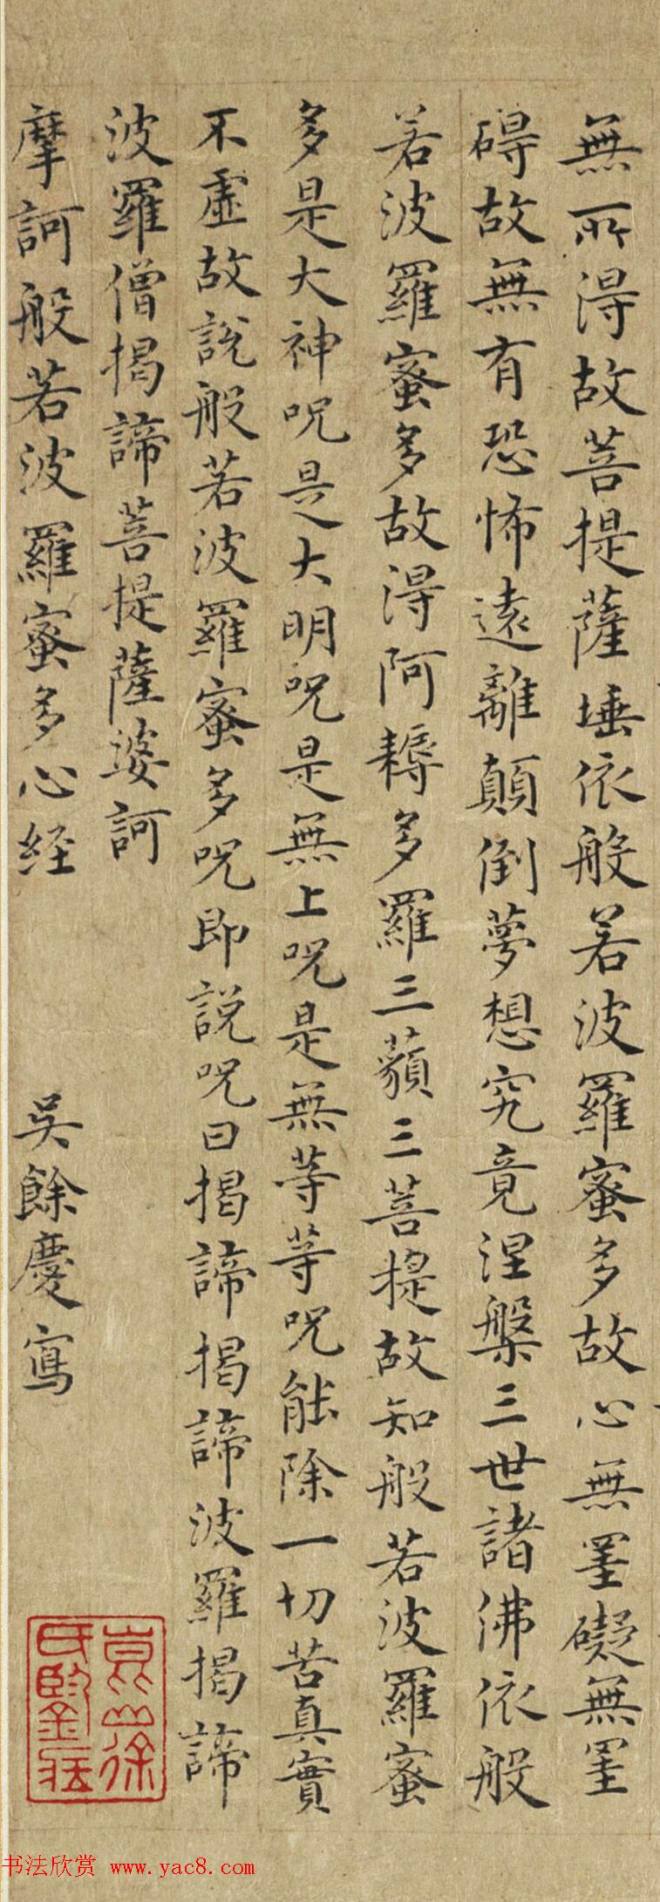 無所得故菩提薩埵依般若波羅蜜多故心無罣礙無罣
碍故無有恐怖遠離顛倒夢想究竟涅槃三世諸佛依般
若波羅蜜多故得阿耨多羅三藐三菩提故知般若波羅蜜
多是大神呪是大明呪是無上呪是無等等呪能除一切苦真實
不虛故說般若波羅蜜多呪即說呪曰揭諦揭諦波羅揭諦
波羅僧揭諦菩提薩婆訶
摩訶般若波羅蜜多心経
吳餘慶寫
徐
氏鑒
书法欣赏 www.yac8.com